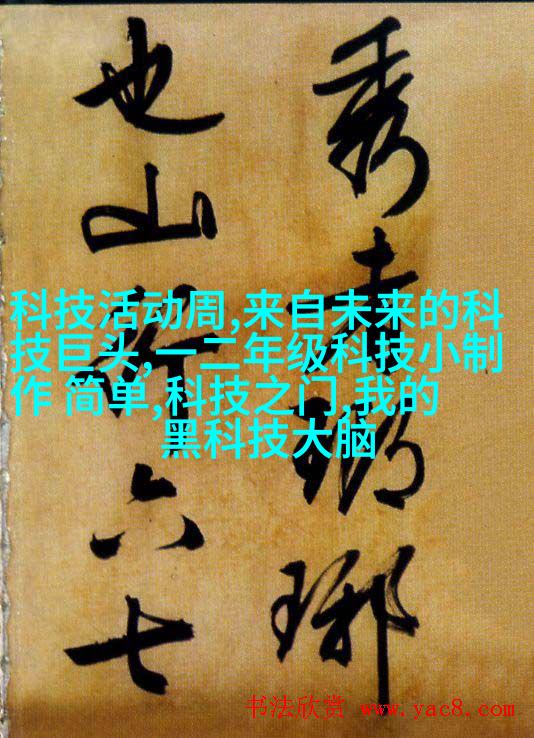 秀者瑯琊
也山行六七
科技活动周,来自未来的科
技巨头,一二年级科技小制
作 简单,科技之门,我的
黑科技大脑
书法欣赏 www.yac8.com